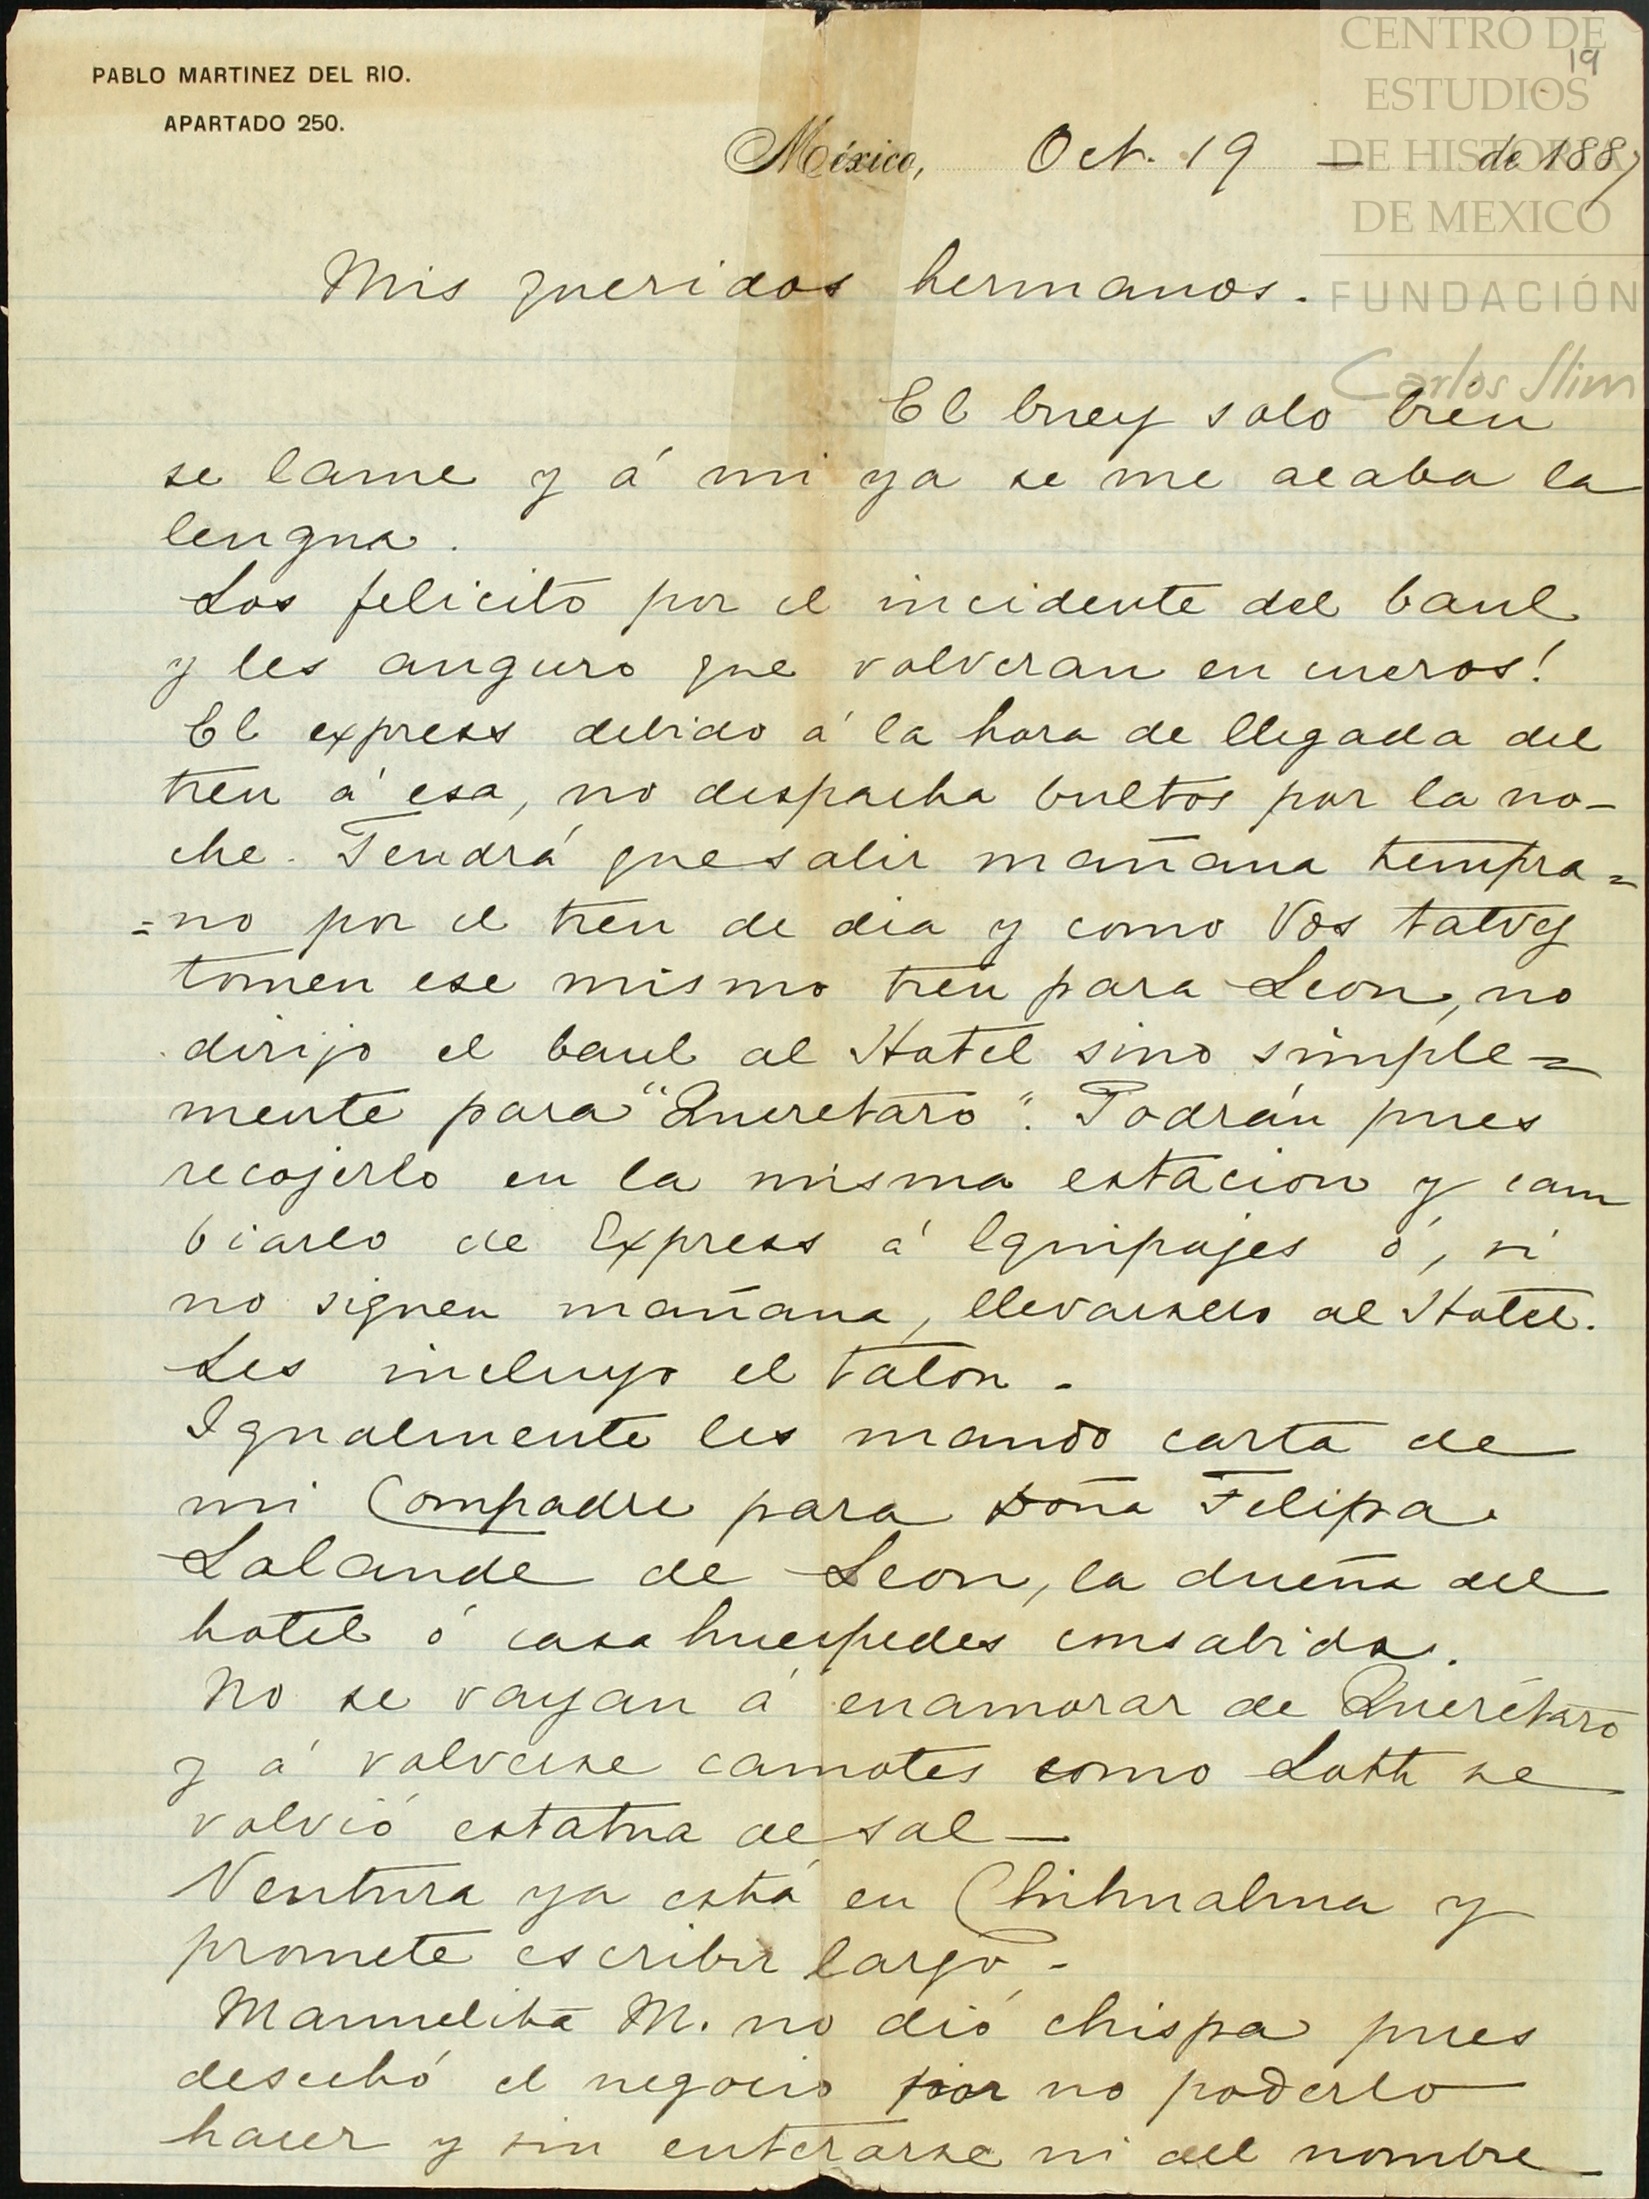 PABLO MARTINEZ DEL RIO.
APARTADO 250.
CENTRO DE
ESTUDIOS
DE HISTORIA
DE MEXICO
FUNDACIÓN
Carlos Slim
19
México, Oct. 19 — de 1887
Mis queridos hermanos.
El buey solo bien
se lame y á mi ya se me acaba la
lengua.
Los felicito por el incidente del baul
y les auguro que volveran en cueros!
El express debido á la hora de llegada del
tren á esa, no despacha bultos por la no-
che. Tendrá que salir mañana tempra=
=no por el tren de dia y como Vds talvez
tomen ese mismo tren para Leon, no
dirijo el baul al Hotel sino simple=
mente para "Queretaro". Podrán pues
recojerlo en la misma estacion y cam
biarlo de Express á Equipajes ó, si
no siguen mañana, llevarselo al Hotel.
Les incluyo el talon -
Igualmente les mando carta de
mi Compadre para Doña Felipa
Lalande de Leon, la dueña del
hotel ó casa huespedes consabida.
No se vayan á enamorar de Querétaro
y á volverse camotes como Loth se
volvió estatua de sal —
Ventura ya está en Chihuahua y
promete escribir largo -
Manuelita M. no dió chispa pues
desechó el negocio por no poderlo
hacer y sin enterarse ni del nombre